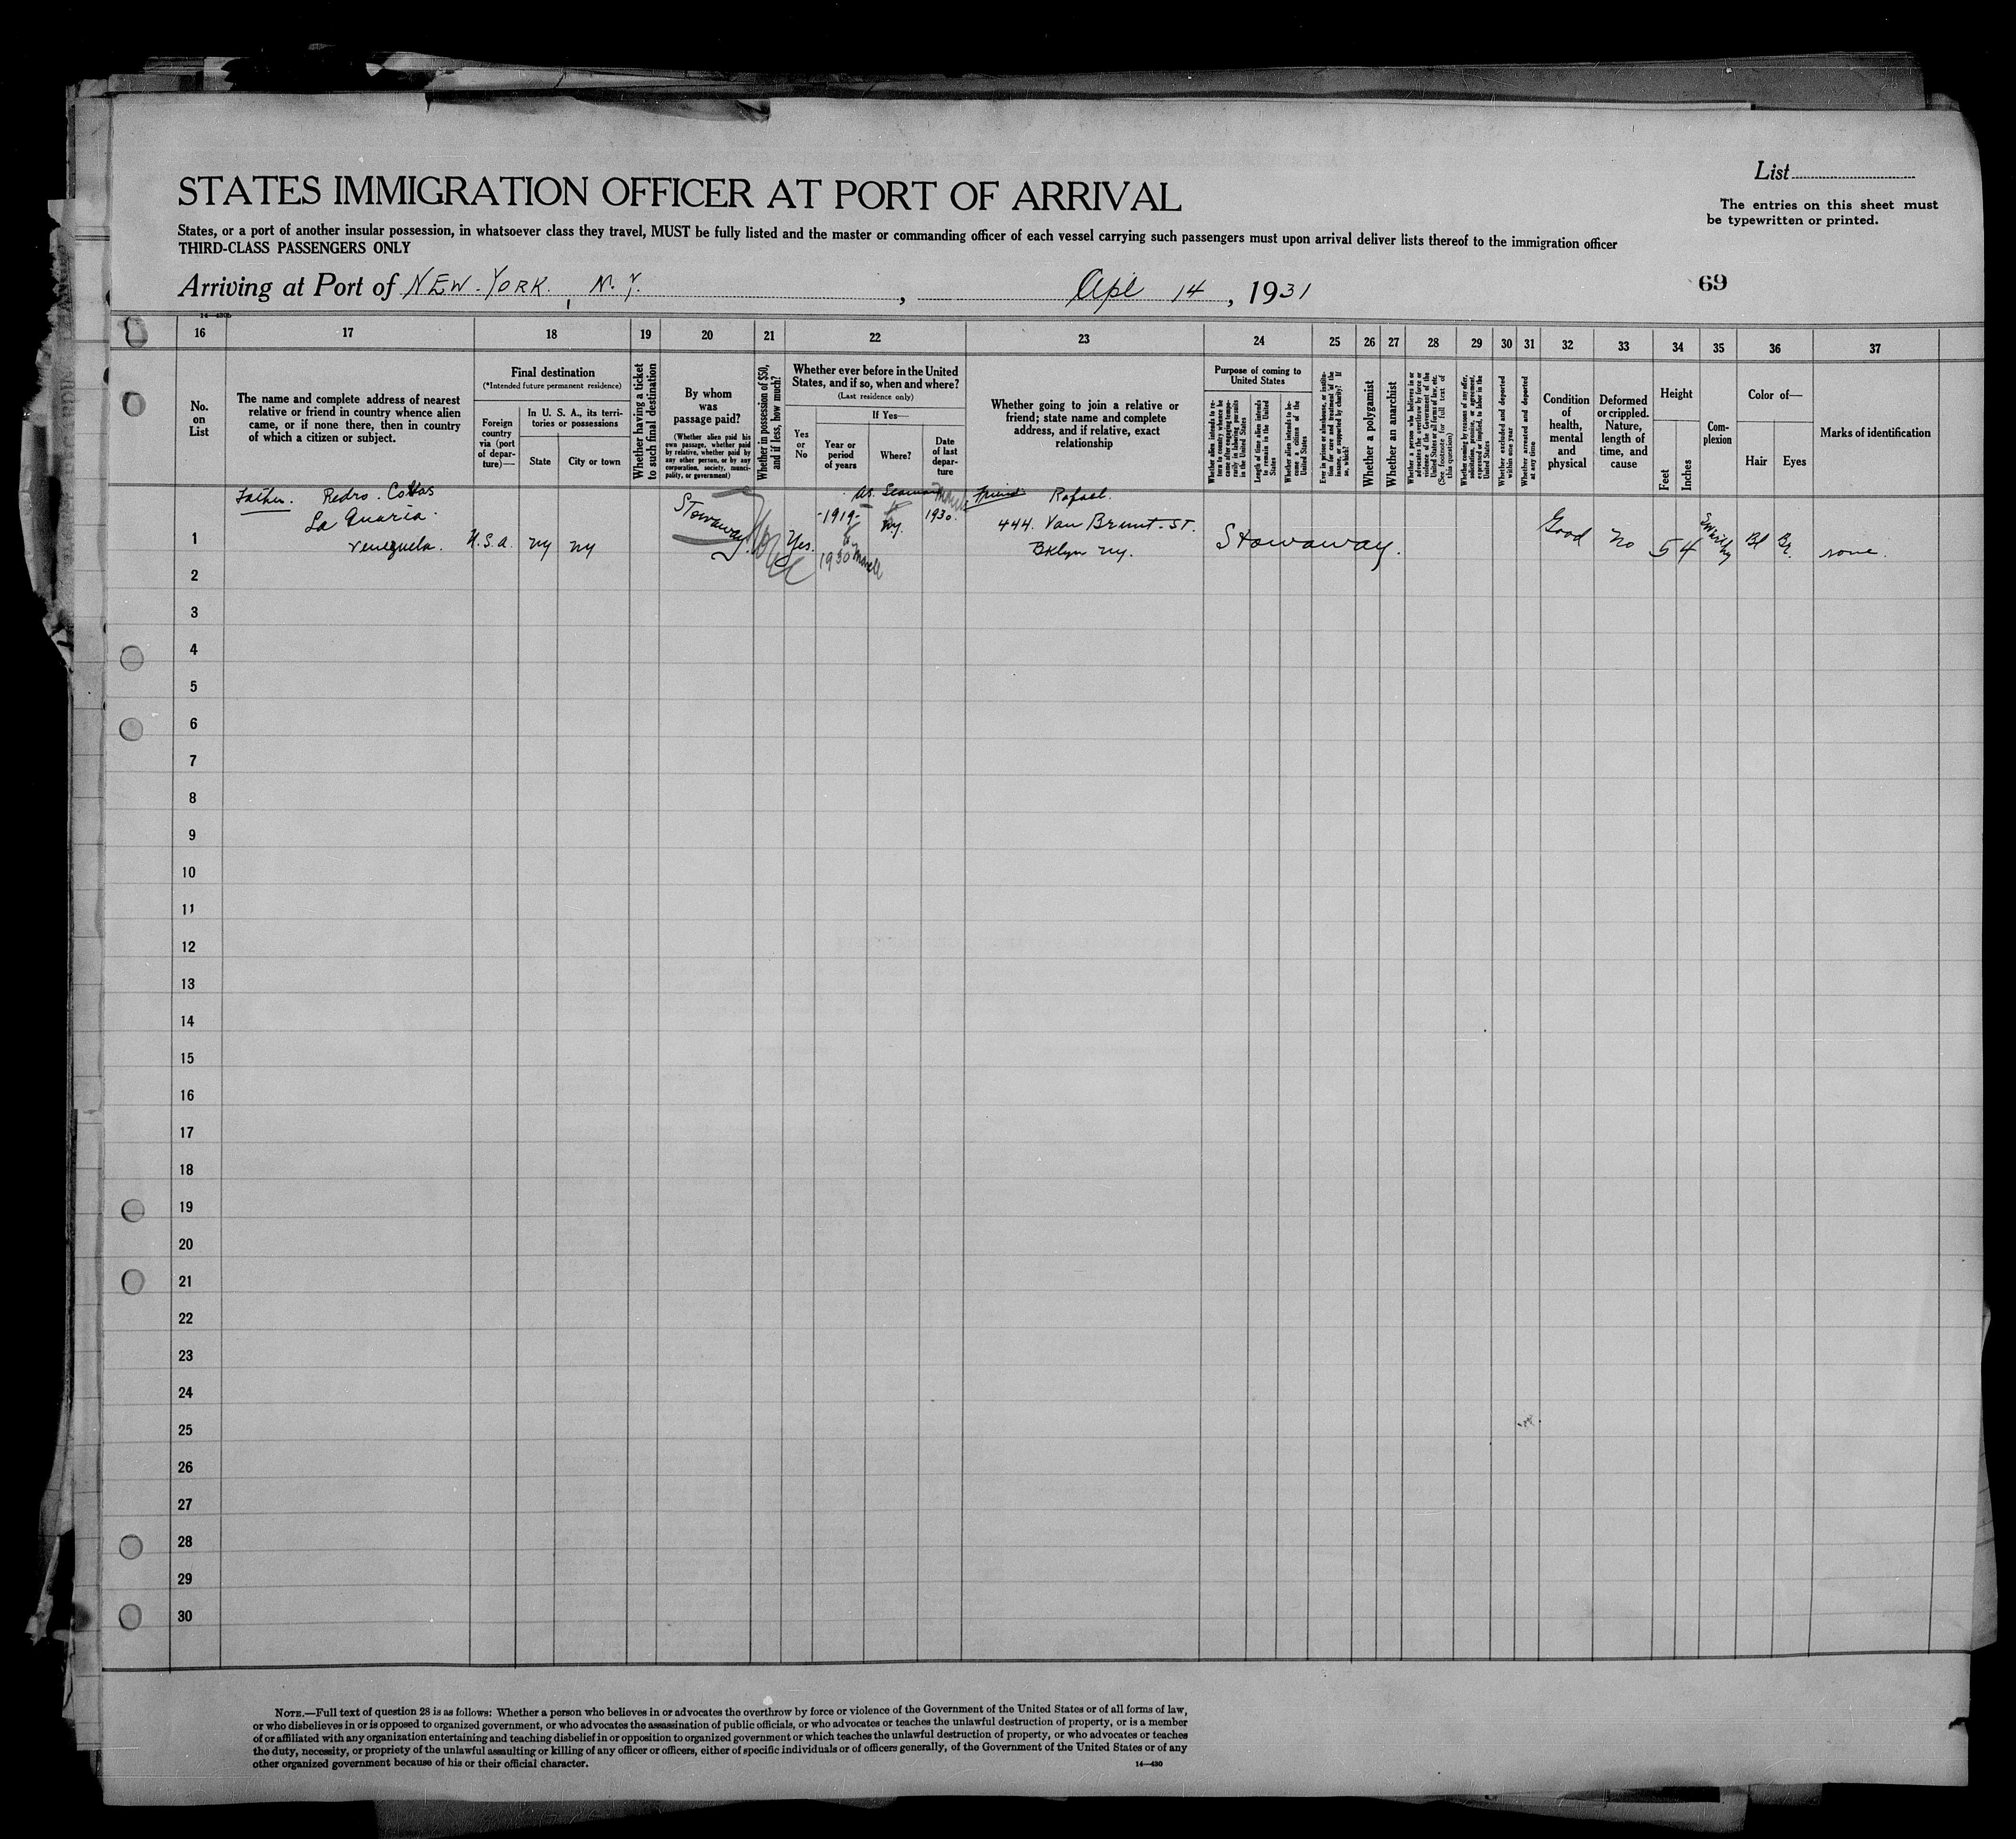 List
The entries on this sheet must
be typewritten or printed.
STATES IMMIGRATION OFFICER AT PORT OF ARRIVAL
States, or a port of another insular possession, in whatsoever class they travel, MUST be fully listed and the master or commanding officer of each vessel carrying such passengers must upon arrival deliver lists thereof to the immigration officer
THIRD-CLASS PASSENGERS ONLY
Arriving at Port of NEW-YORK, N.Y. , Apl 14, 1931
69
16 17 18 19 20 21 22 23 24 25 26 27 28 29 30 31 32 33 34 35 36 37
No.
on
List
The name and complete address of nearest
relative or friend in country whence alien
came, or if none there, then in country
of which a citizen or subject.
Final destination
(*Intended future permanent residence)
Foreign
country
via (port
of depar-
ture)—
In U. S. A., its terri-
tories or possessions
State
City or town
Whether having a ticket
to such final destination
By whom
was
passage paid?
(Whether alien paid his
own passage, whether paid
by relative, whether paid by
any other person, or by any
corporation, society, munici-
pality, or government)
Whether in possession of $50,
and if less, how much?
Whether ever before in the United
States, and if so, when and where?
(Last residence only)
Yes
or
No
If Yes—
Year or
period
of years
Where?
Date
of last
depar-
ture
Whether going to join a relative or
friend; state name and complete
address, and if relative, exact
relationship
Purpose of coming to
United States
Whether alien intends to re-
turn to country whence he
came after engaging tempo-
rarily in laboring pursuits
in the United States
Length of time alien intends
to remain in the United
States
Whether alien intends to be-
come a citizen of the
United States
Ever in prison or almshouse, or institu-
tion for care and treatment of the
insane, or supported by charity? If
so, which?
Whether a polygamist
Whether an anarchist
Whether a person who believes in or
advocates the overthrow by force or
violence of the Government of the
United States or all forms of law, etc.
(See footnote for full text of
this question)
Whether coming by reasons of any offer,
solicitation, promise, or agreement,
expressed or implied, to labor in the
United States
Whether excluded and deported
within one year
Whether arrested and deported
at any time
Condition
of
health,
mental
and
physical
Deformed
or crippled.
Nature,
length of
time, and
cause
Height
Feet
Inches
Com-
plexion
Color of—
Hair
Eyes
Marks of identification
Father. Pedro
La Guaria.
Venezuela.
U.S.A. NY NY
Stowaway
Yes.
Seaman
-1919- NY. 1930.
1930 March
Friend Rafael.
444. Van Brunt-ST.
Bklyn NY.
Stowaway.
Good No 5 4 Swarthy Bl Br. none.
1
2
3
4
5
6
7
8
9
10
11
12
13
14
15
16
17
18
19
20
21
22
23
24
25
26
27
28
29
30
NOTE.—Full text of question 28 is as follows: Whether a person who believes in or advocates the overthrow by force or violence of the Government of the United States or of all forms of law,
or who disbelieves in or is opposed to organized government, or who advocates the assassination of public officials, or who advocates or teaches the unlawful destruction of property, or is a member
of or affiliated with any organization entertaining and teaching disbelief in or opposition to organized government or which teaches the unlawful destruction of property, or who advocates or teaches
the duty, necessity, or propriety of the unlawful assaulting or killing of any officer or officers, either of specific individuals or of officers generally, of the Government of the United States or of any
other organized government because of his or their official character.
14—430